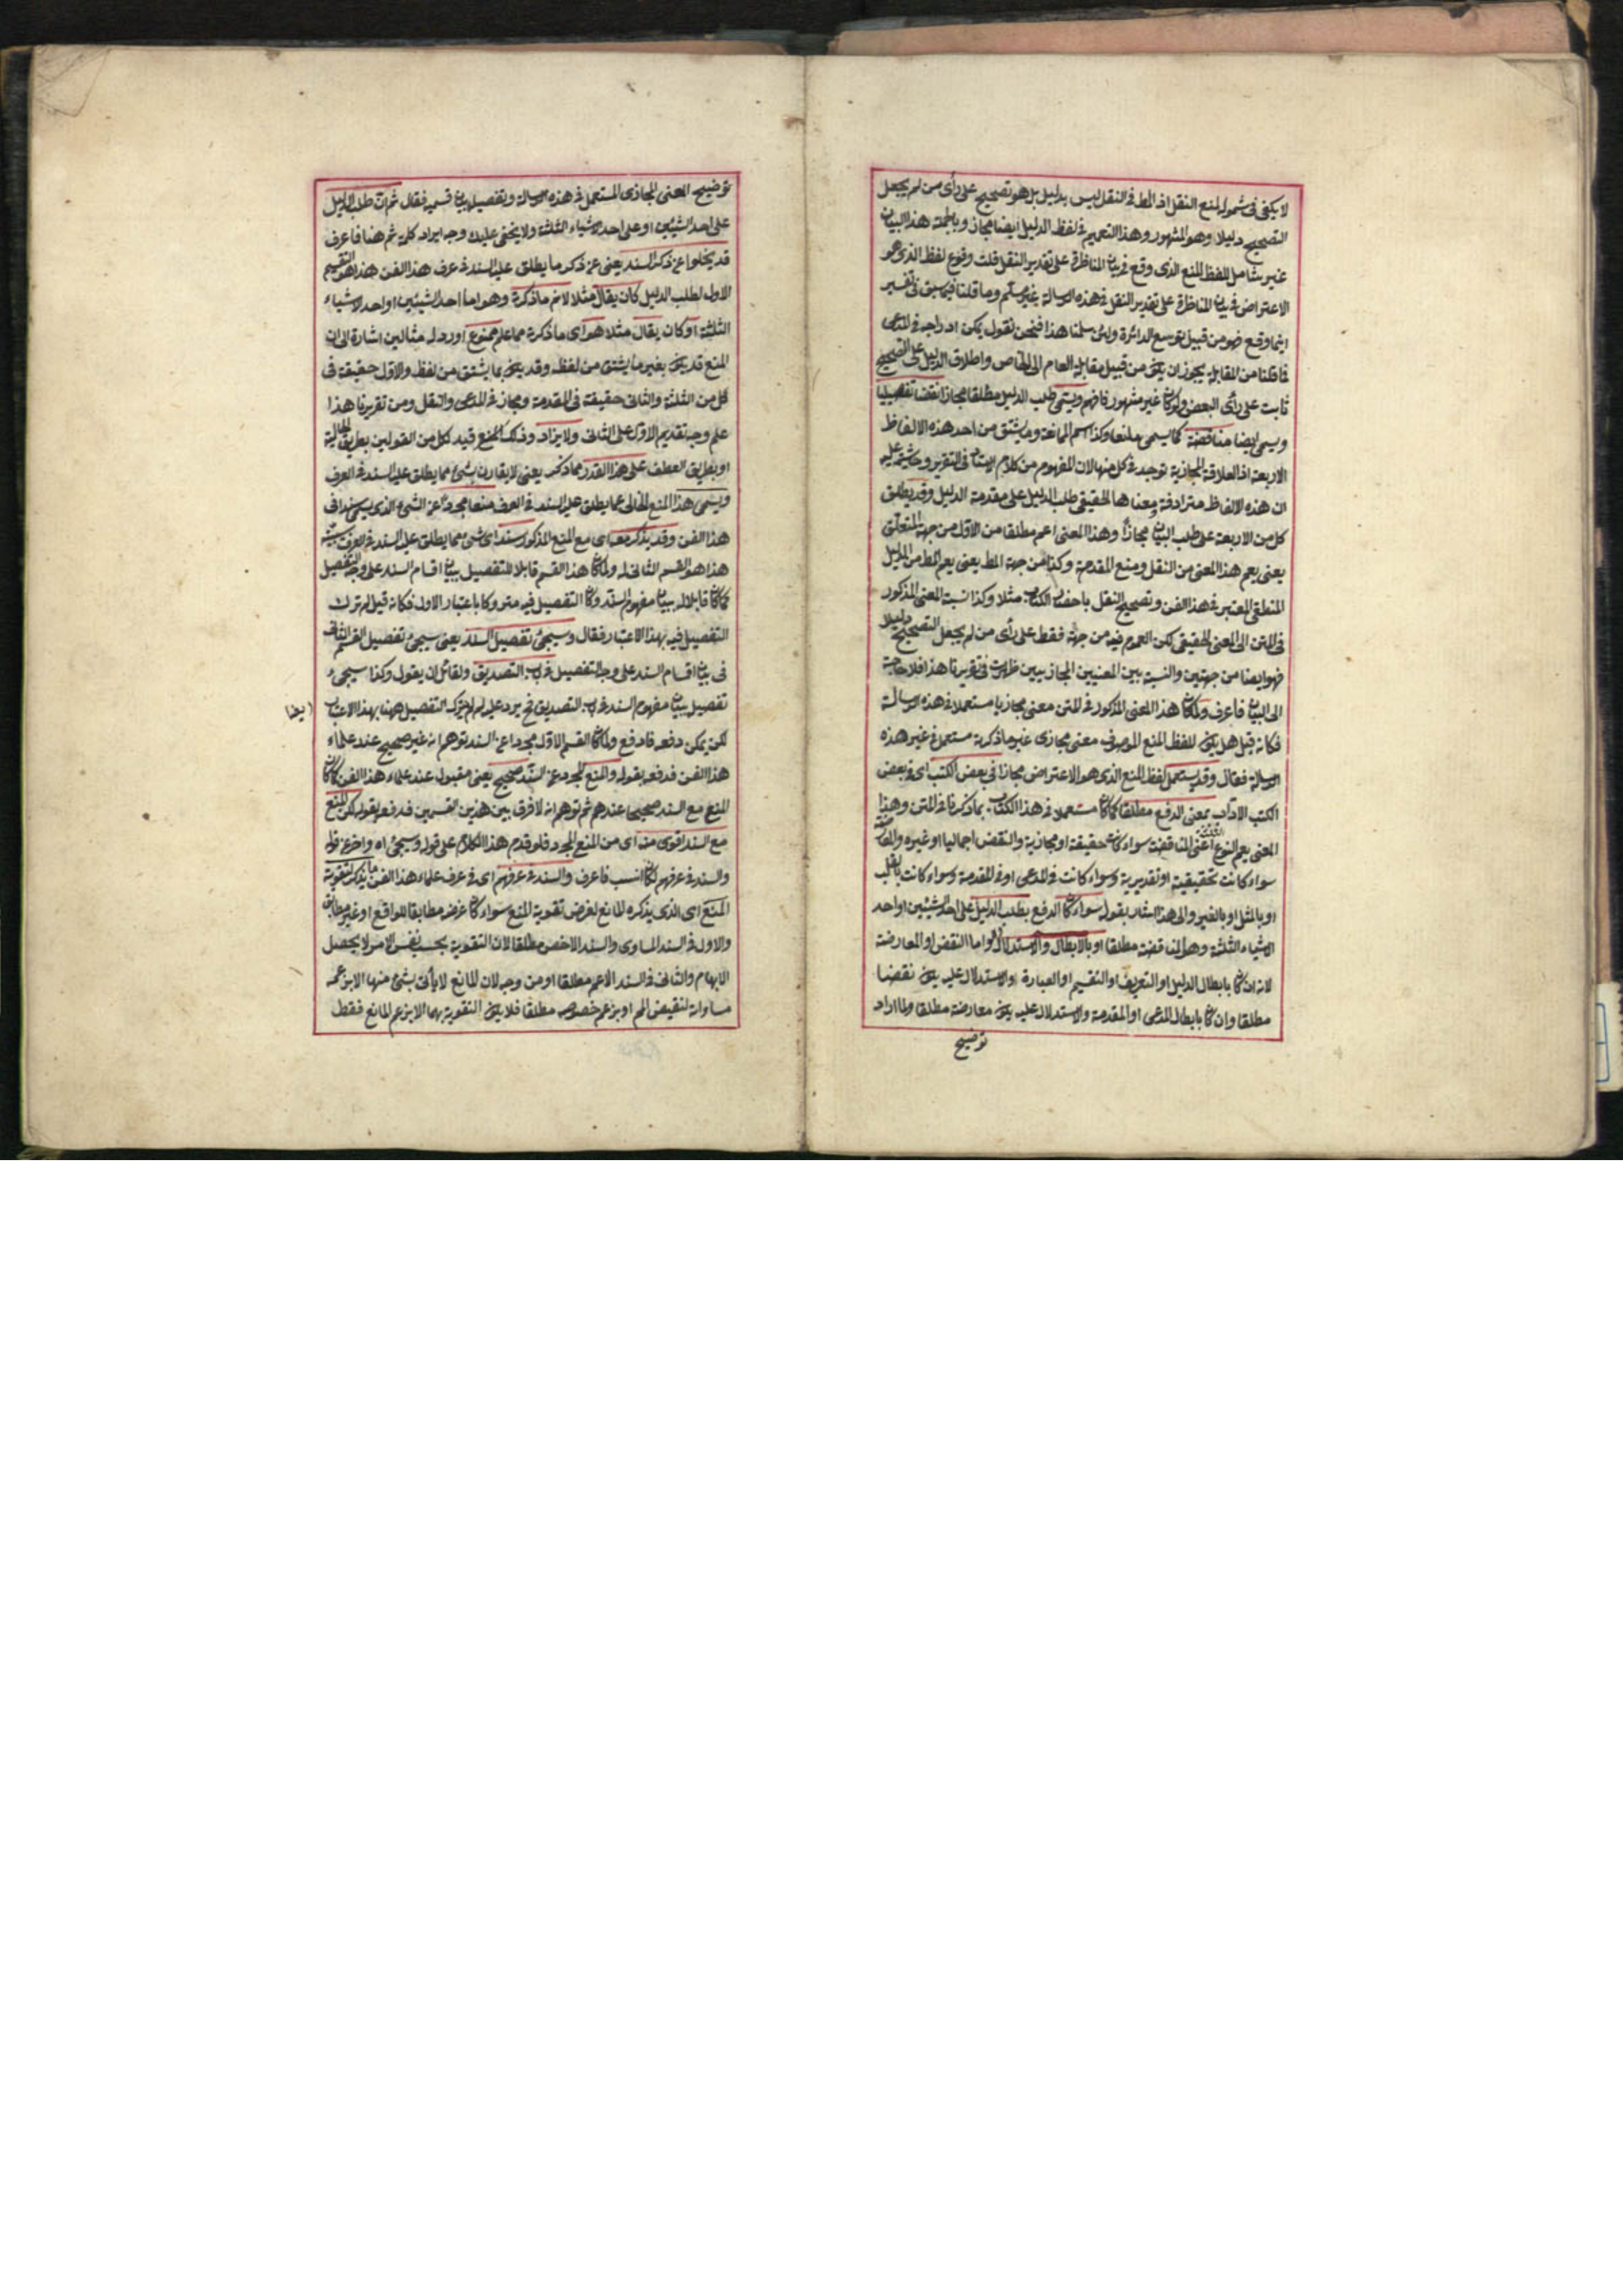 لا يكفى فى شموله لمنع النقل اذ المط فى النقل ليس بدليل بل هو تصحيح على رأى من لم يجعل
التصحيح دليلا وهو المشهور وهذا التعميم فى لفظ الدليل ايضا مجاز وبالجملة هذا البيان
غير شامل للفظ المنع الذى وقع فى بيان المناظرة على تقدير النقل قلت وقوع لفظ الذى هو
الاعتراض فى بيان المناظرة على تقدير النقل فى هذه الرسالة غير مسلم وما قلنا فيما سبق فى تفسير
اينما وقع فهو من قبيل توسع الدائرة ولئن سلمنا هذا فنحن نقول يمكن ادراجه فى المدعى
فما قلنا من المقابلة يجوز ان يكون من قبيل مقابلة العام الى الخاص واطلاق الدليل على التصحيح
ثابت على رأى البعض ولو كان غير مشهور فافهم ويسمى طلب الدليل مطلقا مجازا نقضا تفصيليا
ويسمى ايضا مناقضة كما يسمى منعا وكذا اسم الممانعة وما يشتق من احد هذه الالفاظ
الاربعة اذ العلاقة المجازية توجد فى كل منها لان المفهوم من كلام الاستاد فى التقرير وحاشيته عليه
ان هذه الالفاظ مترادفة ومعناها الحقيقى طلب الدليل على مقدمة الدليل وقد يطلق
كل من الاربعة على طلب البيان مجازا وهذا المعنى اعم مطلقا من الاول من جهة المتعلق
يعنى يعم هذا المعنى من النقل ومنع المقدمة وكذا من جهة المط يعنى يعم المط من الدليل
المنطقى المعتبر فى هذا الفن وتصحيح النقل باحضار الكتاب مثلا وكذا نسبة المعنى المذكور
فى المتن الى المعنى الحقيقى لكن العموم فيه من جهة فقط على رأى من لم يجعل التصحيح دليلا
فهو ايضا من جهتين والنسبة بين المعنيين المجازيين ظهرت فى تقريرنا هذا فلا حاجة
الى البيان فاعرف ولما كان هذا المعنى المذكور فى المتن معنى مجازيا مستعملا فى هذه الرسالة
فكانه قيل هل يكون للفظ المنع الموصوف معنى مجازى غير ما ذكرته مستعمل فى غير هذه
الرسالة فقال وقد يستعمل لفظ المنع الذى هو الاعتراض مجازا فى بعض الكتب اى فى بعض
الكتب الاداب بمعنى الدفع مطلقا كما كان مستعملا فى هذا الكتاب بما ذكرنا فى المتن وهذا
المعنى يعم النوع الثلثة اعنى المناقضة سواء كانت حقيقة او مجازية والنقض اجماليا او غيره والمعارضة
سواء كانت تحقيقية او تقديرية وسواء كانت فى المدعى او فى المقدمة وسواء كانت بالقلب
او بالمثل او بالغير والى هذا اشار بقوله سواء كان الدفع بطلب الدليل على احد الشيئين او احد
الاشياء الثلثة وهو المناقضة مطلقا او بالابطال والاستدلال وهو اما النقض او المعارضة
لانه ان كان بابطال الدليل او التعريف او التقسيم او العبارة والاستدلال عليه يكون نقضا
مطلقا وان كان بابطال المدعى او المقدمة والاستدلال عليه يكون معارضة مطلقا ولما اراد
توضيح
توضيح المعنى المجازى المستعمل فى هذه الرسالة وتفصيل بيان قسميه فقال ثم ان طلب الدليل
على احد الشيئين او على احد الاشياء الثلثة ولا يخفى عليك وجه ايراد كلمة ثم هنا فاعرف
قد يخلوا عن ذكر السند يعنى عن ذكر ما يطلق عليه السند فى عرف هذا الفن هذا هو التقسيم
الاول لطلب الدليل كان يقال مثلا لا نم ما ذكرته وهو اما احد الشيئين او احد الاشياء
الثلثة او كان يقال مثلا هو اى ما ذكرته مما علم ممنوع اورد له مثالين اشارة الى ان
المنع قد يكون بغير ما يشتق من لفظه وقد يكون بما يشتق من لفظه والاول حقيقة فى
كل من الثلثة والثانى حقيقة فى المقدمة ومجاز فى المدعى والنقل ومن تقريرنا هذا
علم وجه تقديم الاول على الثانى ولا يزاد وذلك المنع قيد لكل من القولين بطريق الحالية
او بطريق العطف على هذا القدر مما ذكر يعنى لا يقارن بشئ مما يطلق عليه السند فى العرف
ويسمى هذا المنع الخالى عما يطلق عليه السند فى العرف منعا مجردا عن الشئ الذى يسمى سندا فى
هذا الفن وقد يذكر معه اى مع المنع المذكور سند اى شئ مما يطلق عليه السند فى العرف
هذا هو القسم الثانى له ولما كان هذا القسم قابلا للتفصيل بيان اقسام السند على وجه التفصيل
كما كان قابلا له ببيان مفهوم السند وكان التفصيل فيه متروكا باعتبار الاول فكانه قيل لم ترك
التفصيل فيه بهذا الاعتبار فقال وسيجئ تفصيل السند يعنى سيجئ تفصيل القسم الثانى
فى بيان اقسام السند على وجه التفصيل فى باب التصديق ولقائل ان يقول وكذا سيجئ
تفصيل بيان مفهوم السند فى باب التصديق فح يرد عليه لم لم يترك التفصيل ههنا بهذا الاعتبار
ايضا
لكن يمكن دفعه فادفع ولما كان القسم الاول مجردا عن السند توهم انه غير صحيح عند علماء
هذا الفن فدفعه بقوله والمنع المجرد عن السند صحيح يعنى مقبول عند علماء هذا الفن كما كان
المنع مع السند صحيحا عندهم ثم توهم انه لا فرق بين هذين القسمين فدفعه بقوله لكن المنع
مع السند اقوى منه اى من المنع المجرد فلو قدم هذا الكلام على قوله وسيجئ اه واخر عن قوله
والسند فى عرفهم لكان انسب فاعرف والسند فى عرفهم اى فى عرف علماء هذا الفن ما يذكر لتقوية
المنع اى الذى يذكره المانع لغرض تقوية المنع سواء كان غرضه مطابقا للواقع او غير مطابق
والاول فى السند المساوى والسند الاخص مطلقا لان التقوية بحسب نفس الامر لا يحصل
الا بهما والثانى فى السند الاعم مطلقا او من وجه لان المانع لا يأتى بشئ منها الا بزعمه
مساواته لنقيض المم او بزعم خصوصه مطلقا فلا يكون التقوية بهما الا بزعم المانع فقط